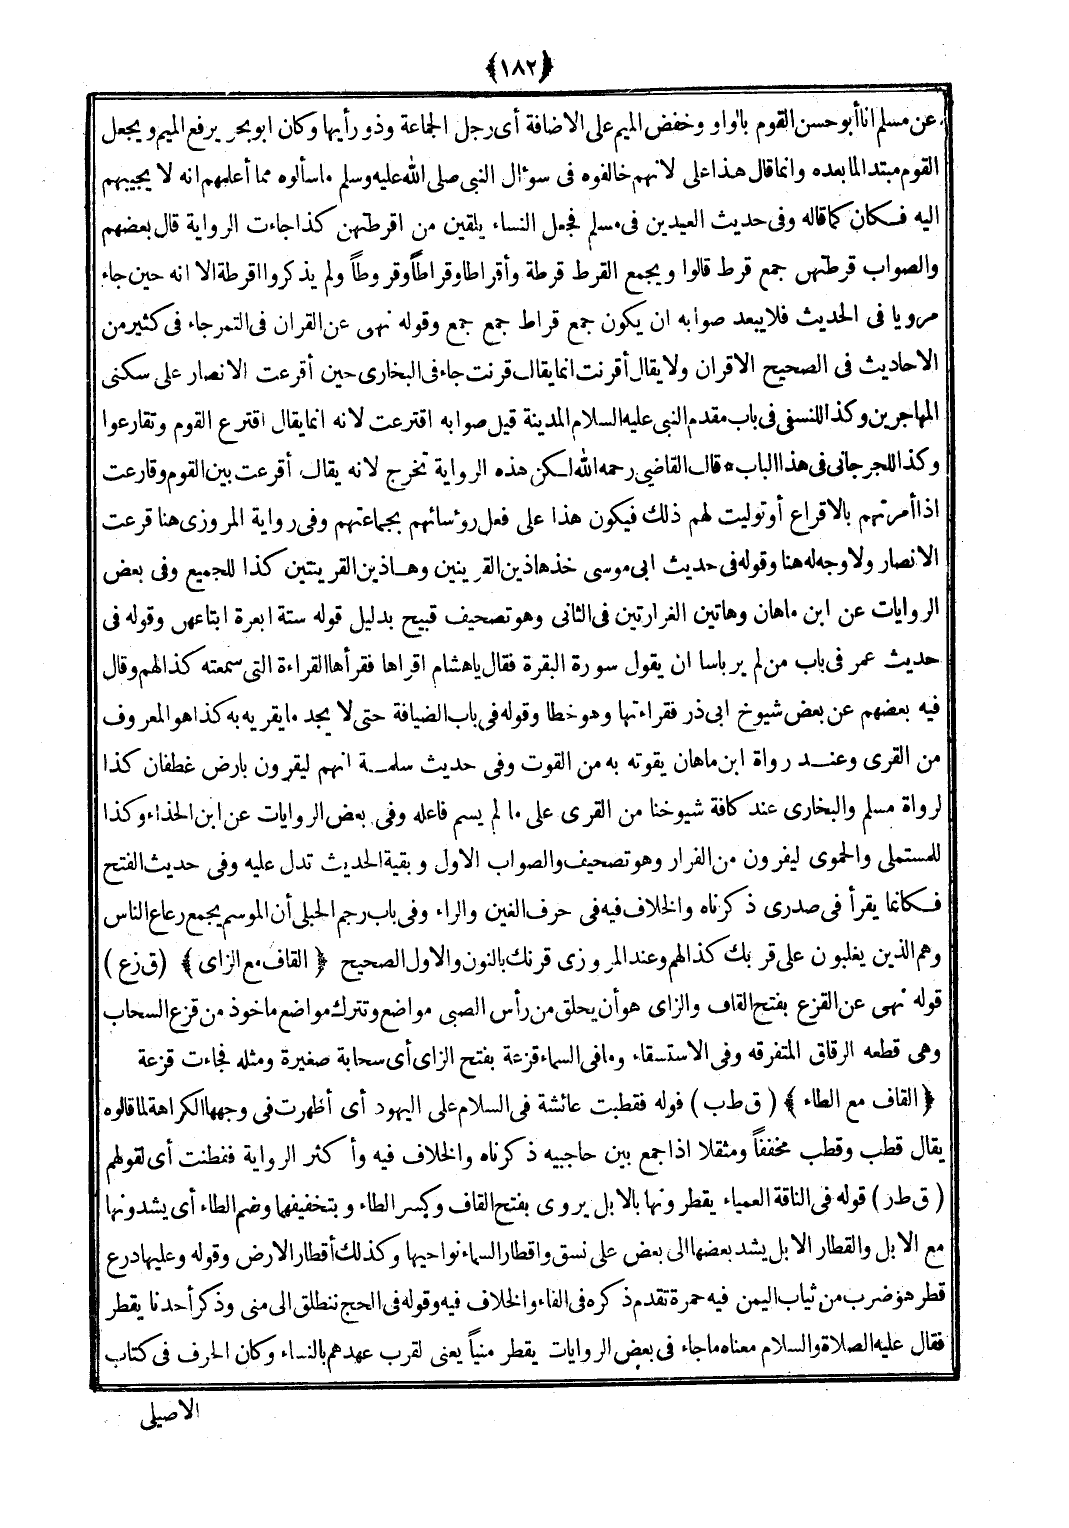 ﴿١٨٢﴾
عن مسلم انا أبو حسن القوم بالواو وخفض الميم على الاضافة أى رجل الجماعة وذو رأيها وكان ابو بحر يرفع الميم ويجعل
القوم مبتدا لما بعده وانما قال هذا على لانهم خالفوه فى سوٴال النبى صلى الله عليه وسلم ما سألوه مما أعلمهم انه لا يجيبهم
اليه فكان كما قاله وفى حديث العيدين فى مسلم فجعل النساء يلقين من اقرطتهن كذا جاءت الرواية قال بعضهم
والصواب قرطتهن جمع قرط قالوا ويجمع القرط قرطة وأقراطا وقراطاً وقروطاً ولم يذكروا اقرطة الا انه حين جاء
مرويا فى الحديث فلا يبعد صوابه ان يكون جمع قراط جمع جمع وقوله نهى عن القران فى التمر جاء فى كثير من
الاحاديث فى الصحيح الاقران ولا يقال أقرنت انما يقال قرنت جاء فى البخارى حين أقرعت الانصار على سكنى
المهاجرين وكذا للنسفى فى باب مقدم النبى عليه السلام المدينة قيل صوابه اقترعت لانه انما يقال اقترع القوم وتقارعوا
وكذا للجرجانى فى هذا الباب * قال القاضى رحمه الله لكن هذه الرواية تخرج لانه يقال أقرعت بين القوم وقارعت
اذا أمرتهم بالاقراع أو توليت لهم ذلك فيكون هذا على فعل روٴسائهم بجماعتهم وفى رواية المروزى هنا قرعت
الانصار ولا وجه له هنا وقوله فى حديث ابى موسى خذ هاذين القرينين وهاذين القرينتين كذا للجميع وفى بعض
الروايات عن ابن ماهان وهاتين الغرارتين فى الثانى وهو تصحيف قبيح بدليل قوله ستة ابعرة ابتاعهن وقوله فى
حديث عمر فى باب من لم ير باسا ان يقول سورة البقرة فقال يا هشام اقراها فقرأها القراءة التى سمعته كذا لهم وقال
فيه بعضهم عن بعض شيوخ ابى ذر فقراءتها وهو خطا وقوله فى باب الضيافة حتى لا يجد ما يقريه به كذا هو المعروف
من القرى وعند رواة ابن ماهان يقوته به من القوت وفى حديث سلمة انهم ليقرون بارض غطفان كذا
لرواة مسلم والبخارى عند كافة شيوخنا من القرى على ما لم يسم فاعله وفى بعض الروايات عن ابن الحذاء وكذا
للمستملى والحموى ليفرون من الفرار وهو تصحيف والصواب الاول وبقية الحديث تدل عليه وفى حديث الفتح
فكانما يقرأ فى صدرى ذكرناه والخلاف فيه فى حرف الغين والراء وفى باب رجم الحبلى أن الموسم يجمع رعاع الناس
وهم الذين يغلبون على قربك كذا لهم وعند المروزى قرنك بالنون والاول الصحيح ﴿ القاف مع الزاى ﴾ ( ق زع )
قوله نهى عن القزع بفتح القاف والزاى هو أن يحلق من رأس الصبى مواضع وتترك مواضع ماخوذ من قزع السحاب
وهى قطعه الرقاق المتفرقه وفى الاستسقاء وما فى السماء قزعة بفتح الزاى أى سحابة صغيرة ومثله فجاءت قزعة
﴿ القاف مع الطاء ﴾ ( ق ط ب ) قوله فقطبت عائشة فى السلام على اليهود أى أظهرت فى وجهها الكراهة لما قالوه
يقال قطب وقطب مخففاً ومثقلا اذا جمع بين حاجبيه ذكرناه والخلاف فيه وأكثر الرواية ففطنت أى لقولهم
( ق ط ر ) قوله فى الناقة العمياء يقطرونها بالابل يروى بفتح القاف وكسر الطاء وبتخفيفهما وضم الطاء أى يشدونها
مع الابل والقطار الابل يشد بعضها الى بعض على نسق واقطار السماء نواحيها وكذلك أقطار الارض وقوله وعليها درع
قطر هو ضرب من ثياب اليمن فيه حمرة تقدم ذكره فى الفاء والخلاف فيه وقوله فى الحج ننطلق الى منى وذكر أحدنا يقطر
فقال عليه الصلاة والسلام معناه ما جاء فى بعض الروايات يقطر منياً يعنى لقرب عهدهم بالنساء وكان الحرف فى كتاب
الاصيلى